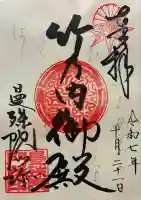 奉拝
令和七年
十月二十一日
竹の内御殿
曼殊院門跡